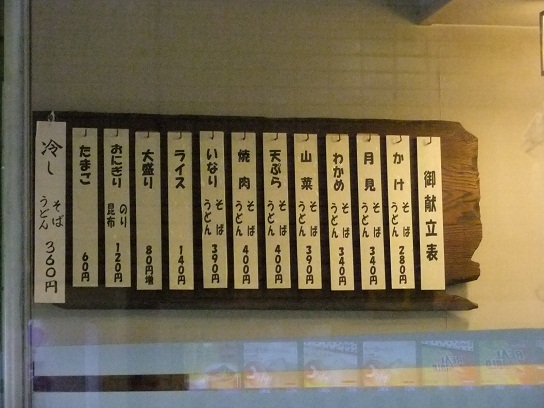 御献立表
かけ そば うどん 280円
月見 そば うどん 340円
わかめ そば うどん 340円
山菜 そば うどん 390円
天ぷら そば うどん 400円
焼肉 そば うどん 400円
いなり そば うどん 390円
ライス 140円
大盛り 80円増
おにぎり のり 昆布 120円
たまご 60円
冷し そば うどん 360円